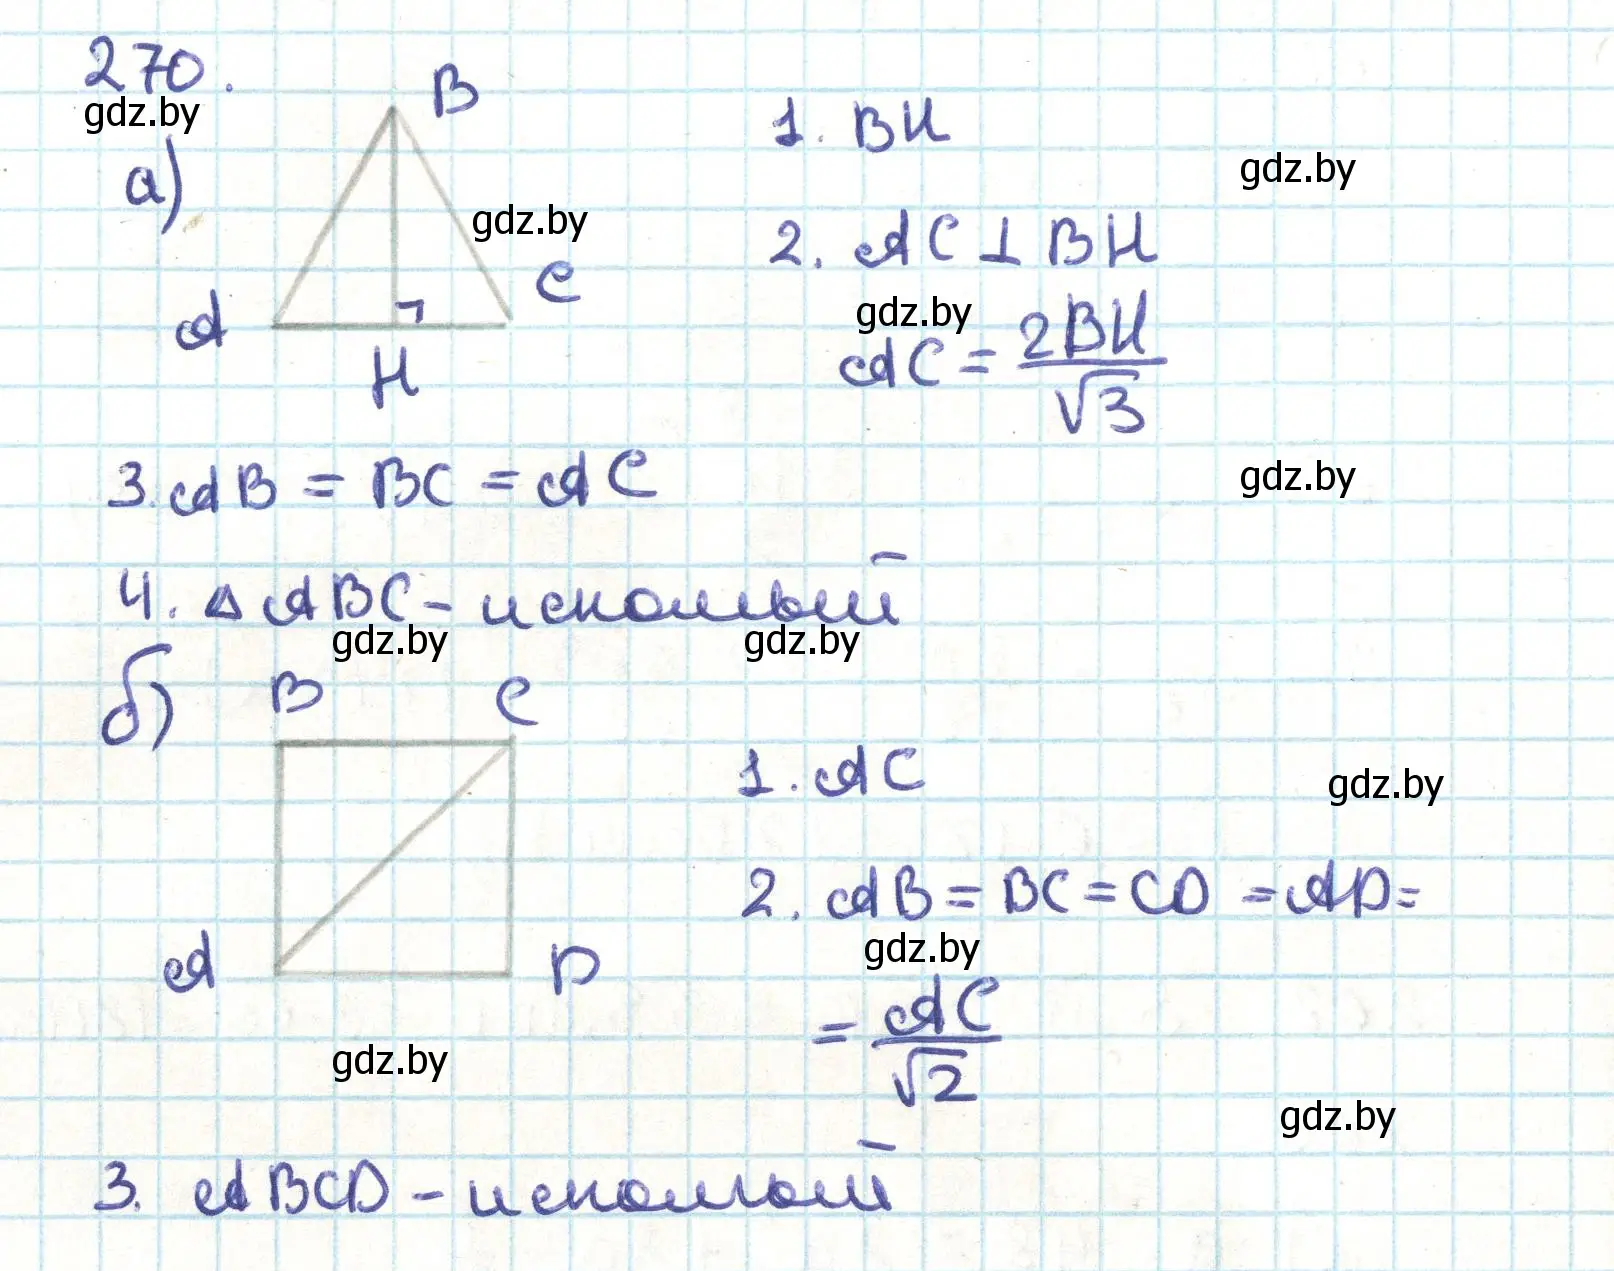 270.
gdz.by
а)
B
A
H
C
gdz.by
1. BH
gdz.by
2. AC ⊥ BH
gdz.by
AC = 2BH / √3
3. AB = BC = AC
gdz.by
4. △ ABC - искомый
gdz.by
gdz.by
б)
B
C
A
D
1. AC
gdz.by
2. AB = BC = CD = AD =
gdz.by
= AC / √2
gdz.by
gdz.by
3. ABCD - искомый